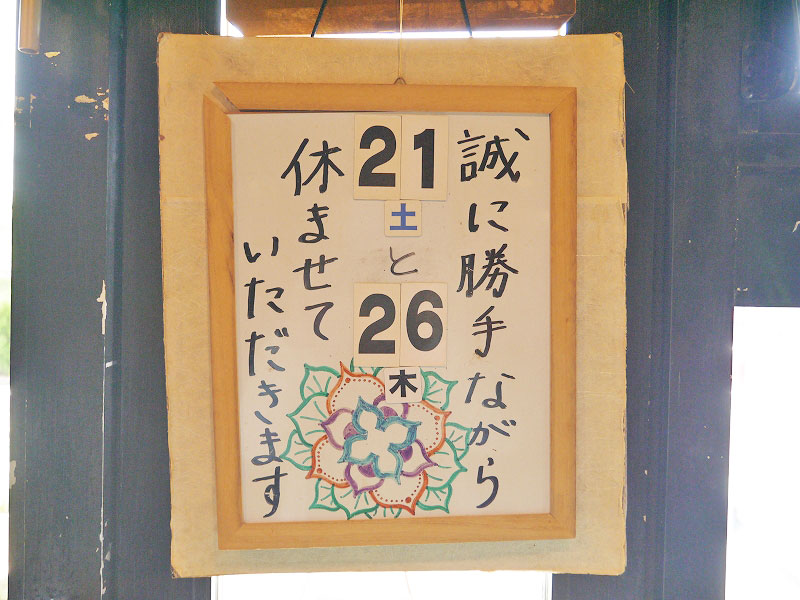 誠に勝手ながら
21
土
と
26
木
休ませて
いただきます